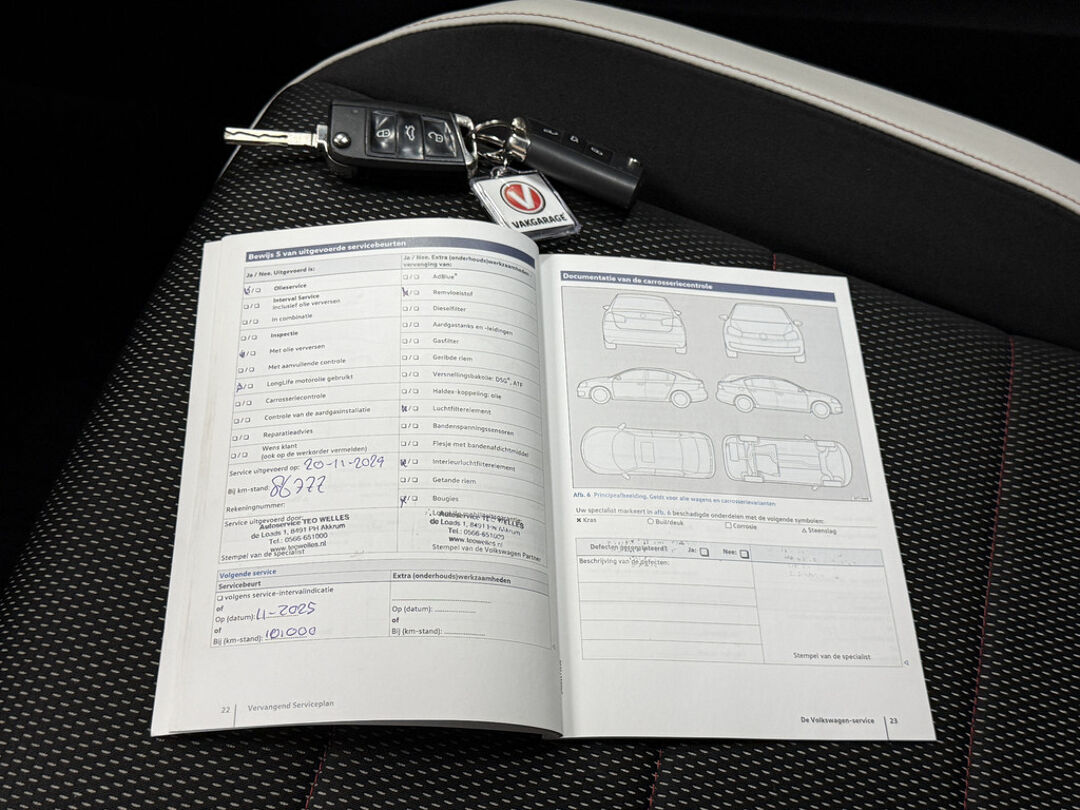 VAKGARAGE
Bewijs 5 van uitgevoerde servicebeurten
Ja / Nee. Uitgevoerd is:
Olieservice
Interval Service
inclusief olie verversen
In combinatie
Inspectie
Met olie verversen
Met aanvullende controle
LongLife motorolie gebruikt
Carrosseriecontrole
Controle van de aardgasinstallatie
Reparatieadvies
Wens klant
(ook op de werkorder vermelden)
Service uitgevoerd op: 20-11-2024
Bij km-stand: 86777
Rekeningnummer:
Service uitgevoerd door:
Autoservice TEO WELLES
de Loads 1, 8491 PH Akkrum
Tel.: 0566-651000
www.teowelles.nl
Stempel van de specialist
Ja / Nee. Extra (onderhouds)werkzaamheden
vervanging van:
AdBlue®
Remvloeistof
Dieselfilter
Aardgastanks en -leidingen
Gasfilter
Geribde riem
Versnellingsbakolie: DSG®, ATF
Haldex-koppeling: olie
Luchtfilterelement
Bandenspanningssensoren
Flesje met bandenafdichtmiddel
Interieurluchtfilterelement
Getande riem
Bougies
Autoservice TEO WELLES
de Loads 1, 8491 PH Akkrum
Tel.: 0566-651000
www.teowelles.nl
Stempel van de Volkswagen Partner
Volgende service
Servicebeurt
volgens service-intervalindicatie
of
Op (datum): 11-2025
of
Bij (km-stand): 101000
Extra (onderhouds)werkzaamheden
Op (datum):
of
Bij (km-stand):
22 Vervangend Serviceplan
Documentatie van de carrosseriecontrole
Afb. 6 Principeafbeelding. Geldt voor alle wagens en carrosserievarianten
Uw specialist markeert in afb. 6 beschadigde onderdelen met de volgende symbolen:
× Kras ○ Buil/deuk □ Corrosie △ Steenslag
Defecten gerepareerd? Ja: Nee:
Beschrijving van de defecten:
Stempel van de specialist
De Volkswagen-service 23